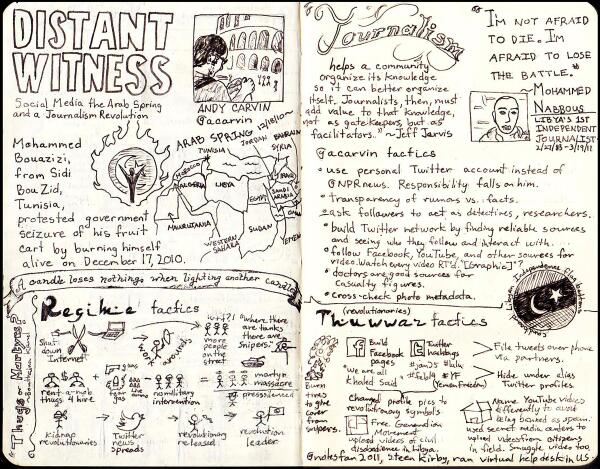 DISTANT
WITNESS
Social Media the Arab Spring
and a Journalism Revolution
ANDY CARVIN
@acarvin
Mohammed
Bouazizi,
from Sidi
Bou Zid,
Tunisia,
protested government
seizure of his fruit
cart by burning himself
alive on December 17, 2010.
ARAB SPRING 12/18/10~
TUNISIA
JORDAN
BAHRAIN
SYRIA
MOROCCO
ALGERIA
LIBYA
EGYPT
SAUDI
ARABIA
MAURITANIA
WESTERN
SAHARA
SUDAN
YEMEN
A candle loses nothing when lighting another candle
Thugs or Martyrs?
Regime tactics
Shut-
down
Internet
go around
w+f?!
more
people
on the
street
"where there
are tanks
there are
snipers."
rent-a-mob
thugs 4 hire
tear
gas
ammo
no military
intervention
martyr
massacre
press silenced
kidnap
revolutionaries
Twitter
news
spreads
revolutionary
released
revolution
leader
Journalism
helps a community
organize its knowledge
so it can better organize
itself. Journalists, then, must
add value to that knowledge,
not as gate-keepers, but as
facilitators." ~Jeff Jarvis
"I'M NOT AFRAID
TO DIE. I'M
AFRAID TO LOSE
THE BATTLE."
~MOHAMMED
NABBOUS
LIBYA'S 1ST
INDEPENDENT
JOURNALIST
2/27/83-3/19/11
@acarvin tactics
• use personal Twitter account instead of
@NPRnews. Responsibility falls on him.
• transparency of rumors vs. facts.
• ask followers to act as detectives, researchers.
• build Twitter network by finding reliable sources
and seeing who they follow and interact with.
• follow Facebook, YouTube, and other sources for
video. Watch every video RT'd. [Graphic]"?
• doctors are good sources for
casualty figures.
• cross-check photo metadata.
Libyan independence flag button
(revolutionaries)
Thuwwar tactics
Burn
tires
to give
cover
from
snipers.
f Build
Facebook
pages
"we are all
Khaled Said"
Twitter
hashtags
#jan25 #bahr
#feb14 #YF
(YemenFreedom)
File tweets over phone
via partners.
Hide under alias
Twitter profiles.
Changed profile pics to
revolutionary symbols
Free Generation
Movement
upload videos of civil
disobedience in Libya.
Name YouTube videos
differently to avoid
being banned as spam.
used secret media centers to
upload videos from citizens
in field. Smuggle video too.
@notesfan 2011, Steen Kirby, ran virtual helpdesk in US.